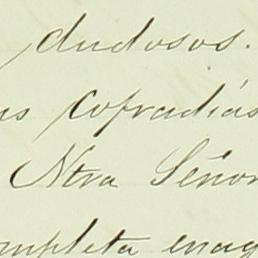 dudosos.
cofradías
Ntra Señor
mpleta enag